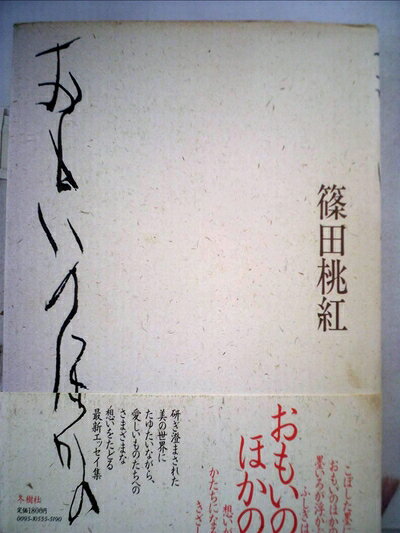 おもいのほかの
篠田桃紅
こぼした墨に
おもいのほかの
墨いろが浮か
ふしぎは
かたちになる
想いが
きざし
おもいの
ほかの
研ぎ澄まされた
美の世界に
たゆたいながら、
愛しいものたちへの
さまざまな
想いをたどる
最新エッセイ集
冬樹社
定価1800円
0095-10555-5190